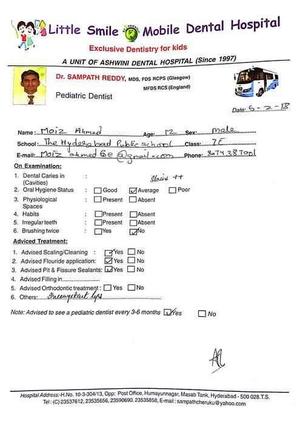 Little Smile Mobile Dental Hospital
Exclusive Dentistry for kids
A UNIT OF ASHWINI DENTAL HOSPITAL (Since 1997)
Dr. SAMPATH REDDY, MDS, FDS RCPS (Glasgow)
MFDS RCS (England)
Pediatric Dentist
Date: 5-2-18
Name: Moiz Ahmed Age: 12 Sex: male
School: The Hyderabad Public school Class: 7E
E-mail: Phone:
On Examination:
1. Dental Caries in : Stains ++
(Cavities)
2. Oral Hygiene Status : Good Average Poor
3. Physiological : Present Absent
Spaces
4. Habits : Present Absent
5. Irregular teeth : Present Absent
6. Brushing twice : Yes No
Adviced Treatment:
1. Advised Scaling/Cleaning : Yes No
2. Advised Flouride application: Yes No
3. Advised Pit & Fissure Sealants: Yes No
4. Advised Filling in
5. Advised Orthodontic treatment : Yes No
6. Others: Incompetent lips
Note: Advised to see a pediatric dentist every 3-6 months Yes No
Hospital Address: H.No. 10-3-304/13, Opp: Post Office, Humayunnagar, Masab Tank, Hyderabad - 500 028.T.S.
Tel: (C) 23537612, 23535656, 23590690, 23535858, E-mail : sampathcheruku@yahoo.com